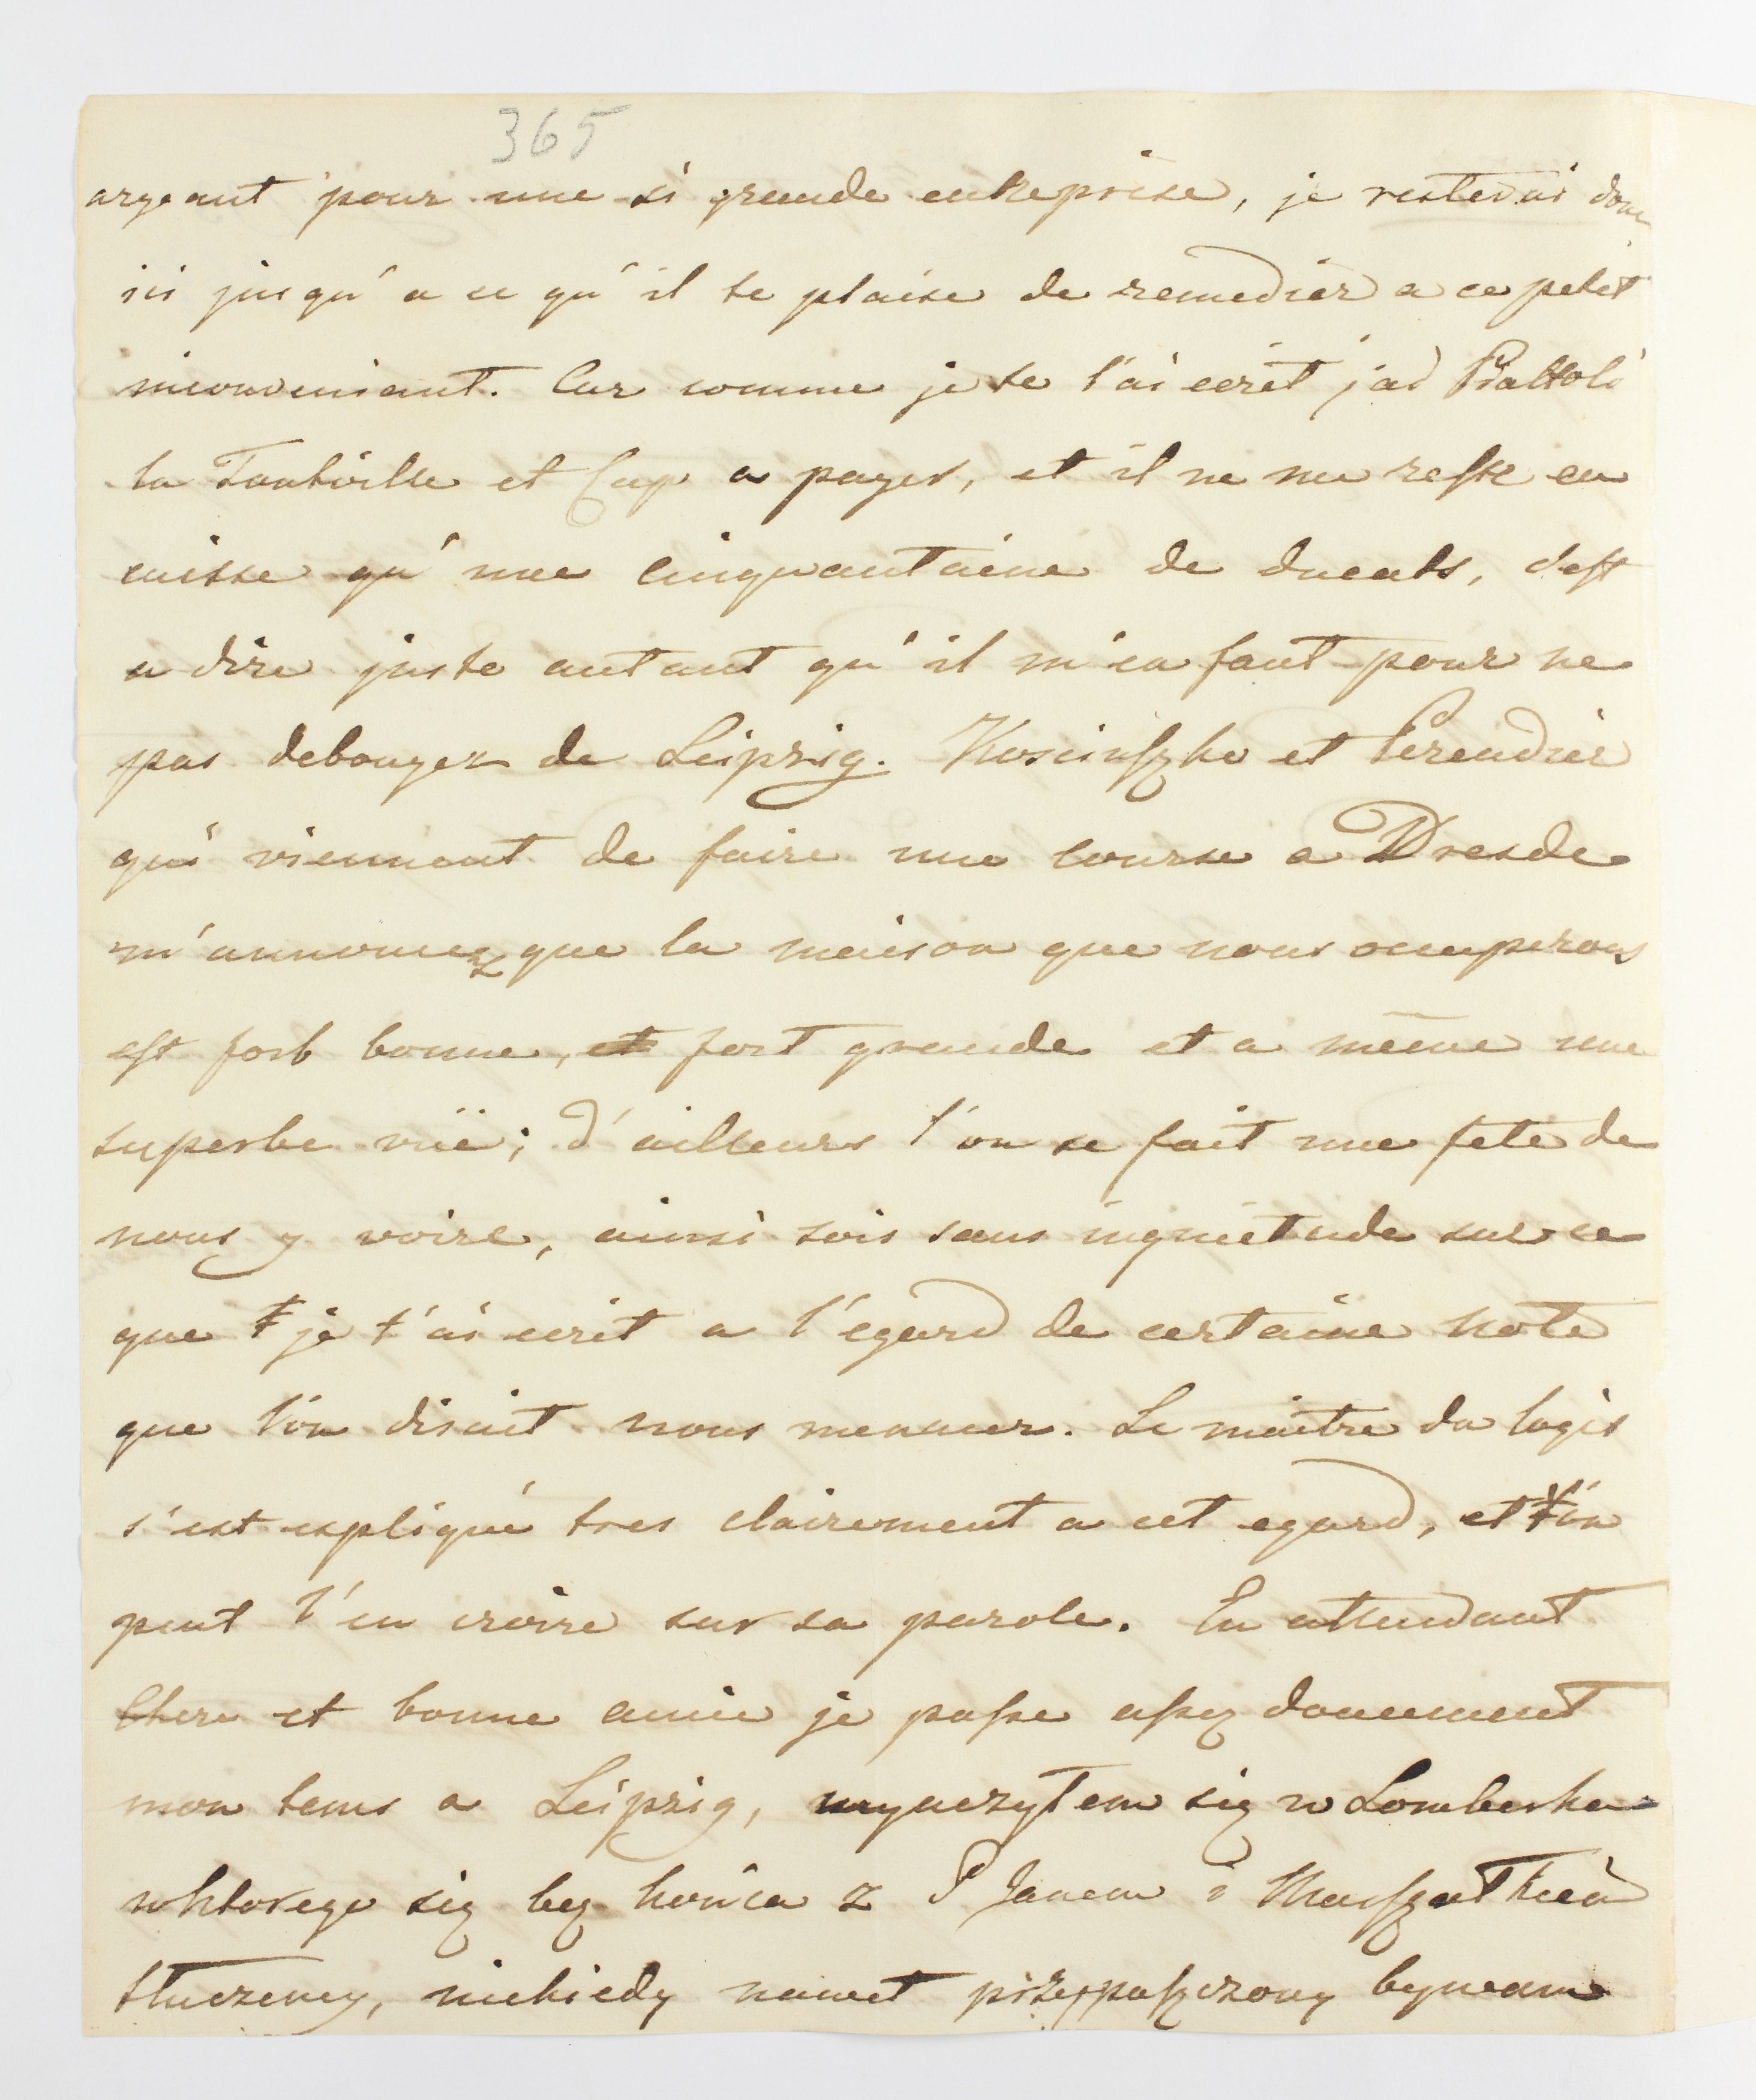 365
argeant pour une si grande entreprise, je resterai donc
ici jusqu'a ce qu'il te plaise de remedier a ce petit
inconveniant. Car comme je te l'ai ecrit j'ai Piattoli
la Tantville et Cap a payer, et il ne me reste en
caisse qu'une cinquantaine de ducats, c'est
a dire juste autant qu'il m'en faut pour ne
pas debouger de Leipzig. Kosciuszko et Perendier
qui viennent de faire une course a Dresde
m'annoncez que la maison que nous occuperons
est fort bonne, et fort grande et a même une
superbe vüe; d'ailleurs l'on se fait une fete de
nous y voire, ainsi sois sans inquietude sur ce
que je t'ai ecrit a l'égard de certaine note
que l'on disait nous menacer. Le maitre du logis
s'est expliqué tres clairement a cet egard, et l'on
peut l'en croire sur sa parole. En attendant
Chere et bonne amie je passe assez doucement
mon tems a Leipzig, wyuczyłem się w Lomberka
wktorego się bez końca z P Janem i
tłuczemy, niekiedy nawet przypuszczony bywam